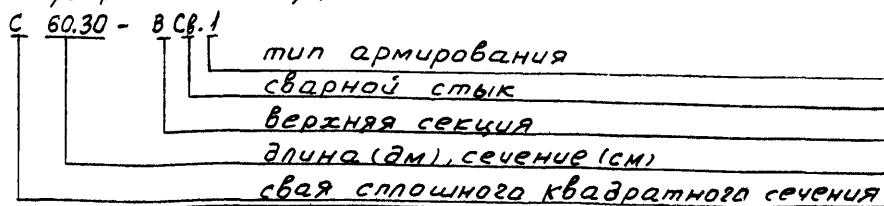 С 60.30 - В Св.1
тип армирования
сварной стык
верхняя секция
длина (дм), сечение (см)
свая сплошного квадратного сечения